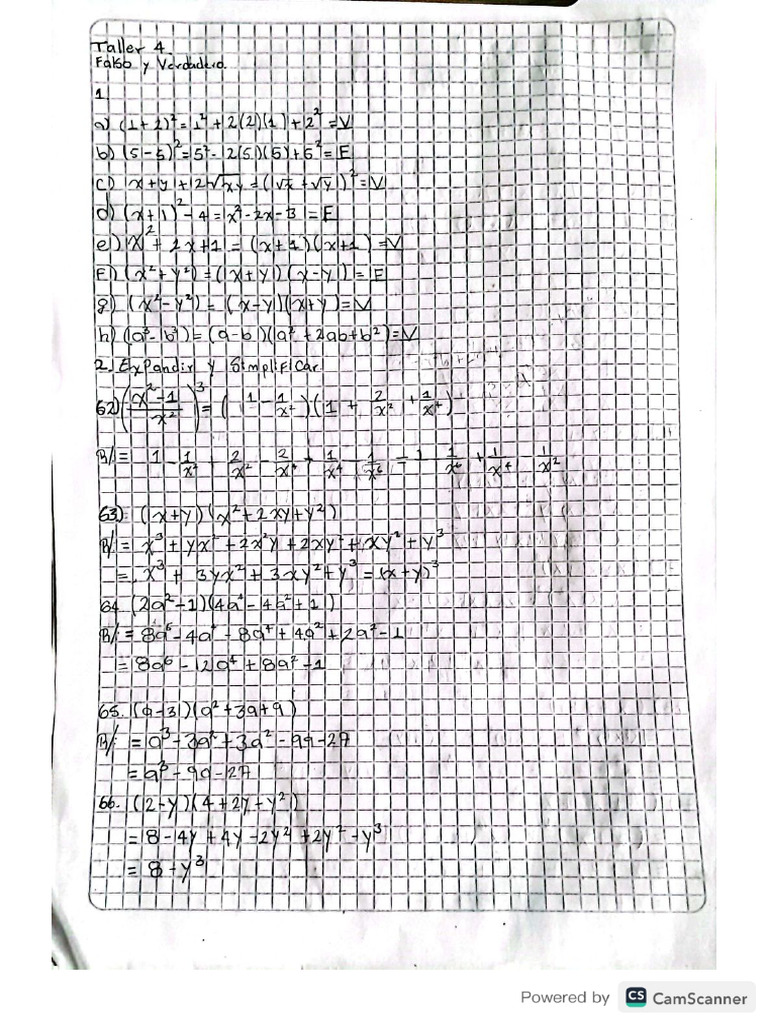 Taller 4
Falso y Verdadero.
1
a) (1+2)² = 1² + 2(2)(1) + 2² = V
b) (5-5)² = 5² - 2(5)(5) + 5² = F
c) x+y+2√xy = (√x + √y)² = V
d) (x+1)² - 4 = x² - 2x - 3 = F
e) x² + 2x+1 = (x+1)(x+1) = V
F) (x²+y²) = (x+y)(x-y) = F
g) (x²-y²) = (x-y)(x+y) = V
h) (a³-b³) = (a-b)(a²+2ab+b²) = V
2. Expandir y Simplificar
62) ((x²-1)/x²)³ = (1 - 1/x²)(1 + 2/x² + 1/x⁴)
R/= 1 - 1/x² + 2/x² - 2/x⁴ + 1/x⁴ - 1/x⁶ = 1 - 1/x⁶ + 1/x⁴ - 1/x²
63). (x+y)(x²+2xy+y²)
R/= x³ + yx² + 2x²y + 2xy² + xy² + y³
= x³ + 3yx² + 3xy² + y³ = (x+y)³
64. (2a²-1)(4a⁴-4a²+1)
R/= 8a⁶ - 4a⁴ - 8a⁴ + 4a² + 2a² - 1
= 8a⁶ - 12a⁴ + 8a² - 1
65. (a-3)(a²+3a+9)
R/ = a³ - 3a² + 3a² - 9a - 27
= a³ - 9a - 27
66. (2-y)(4+2y+y²)
= 8 - 4y + 4y - 2y² + 2y² - y³
= 8 - y³
Powered by CS CamScanner